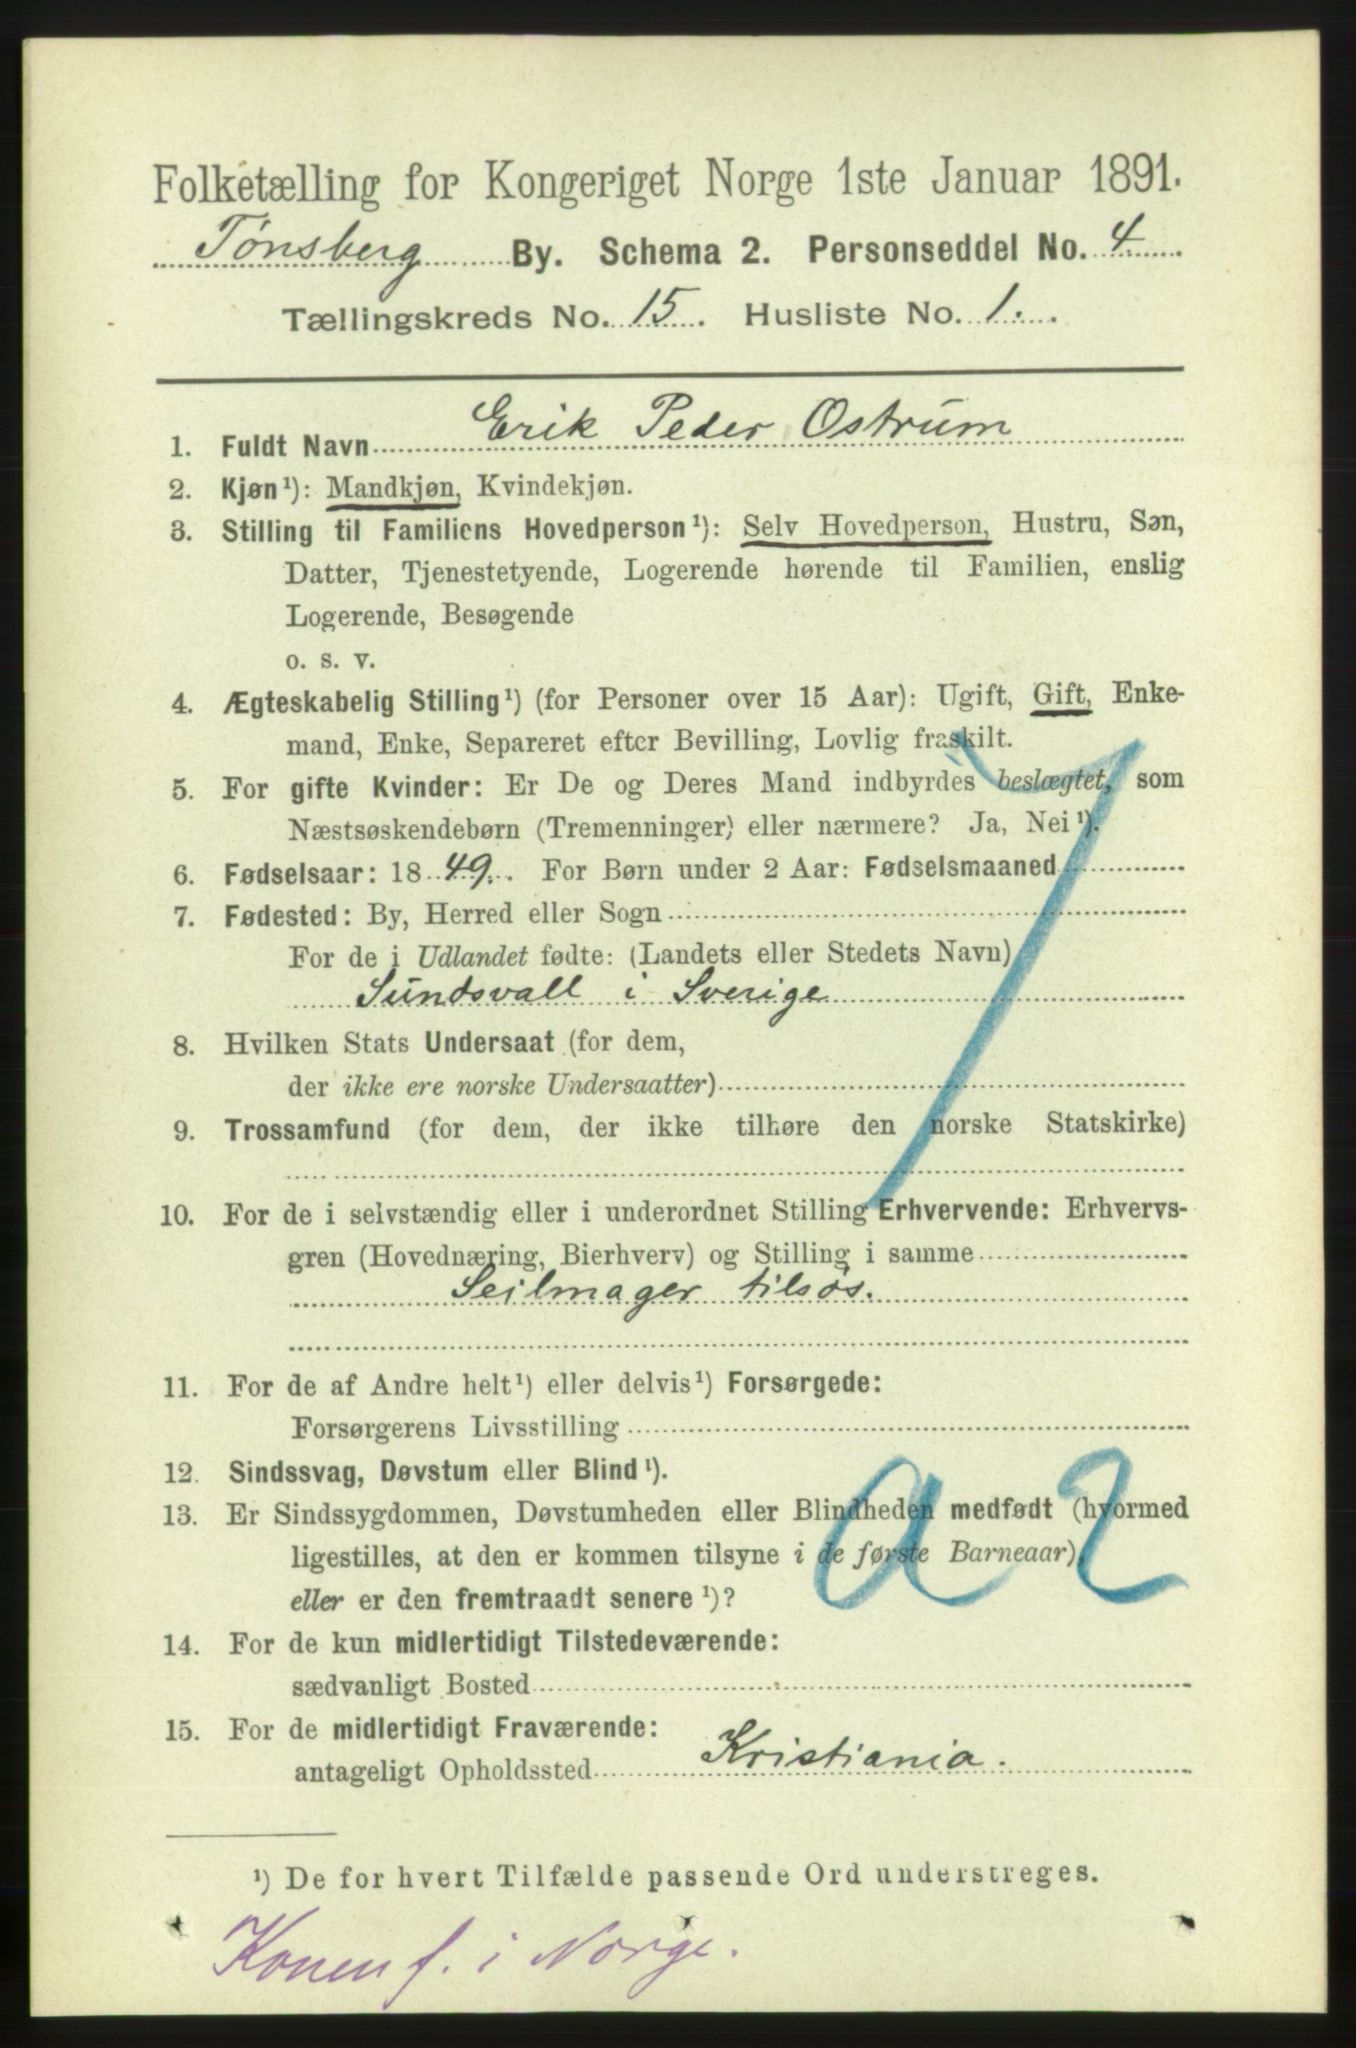 Folketælling for Kongeriget Norge 1ste Januar 1891.
Tønsberg By. Schema 2. Personseddel No. 4
Tællingskreds No. 15. Husliste No. 1.
1. Fuldt Navn Erik Peder Ostrüm
2. Kjøn¹): Mandkjøn, Kvindekjøn.
3. Stilling til Familiens Hovedperson¹): Selv Hovedperson, Hustru, Søn,
Datter, Tjenestetyende, Logerende hørende til Familien, enslig
Logerende, Besøgende
o. s. v.
4. Ægteskabelig Stilling¹) (for Personer over 15 Aar): Ugift, Gift, Enke-
mand, Enke, Separeret efter Bevilling, Lovlig fraskilt.
5. For gifte Kvinder: Er De og Deres Mand indbyrdes beslægtet, som
Næstsøskendebørn (Tremenninger) eller nærmere? Ja, Nei¹).
6. Fødselsaar: 1849. For Børn under 2 Aar: Fødselsmaaned
7. Fødested: By, Herred eller Sogn
For de i Udlandet fødte: (Landets eller Stedets Navn)
Sundsvall i Sverige
8. Hvilken Stats Undersaat (for dem,
der ikke ere norske Undersaatter)
9. Trossamfund (for dem, der ikke tilhøre den norske Statskirke)
10. For de i selvstændig eller i underordnet Stilling Erhvervende: Erhvervs-
gren (Hovednæring, Bierhverv) og Stilling i samme
Seilmager tilsøs.
11. For de af Andre helt¹) eller delvis¹) Forsørgede:
Forsørgerens Livsstilling
12. Sindssvag, Døvstum eller Blind¹).
13. Er Sindssygdommen, Døvstumheden eller Blindheden medfødt (hvormed
ligestilles, at den er kommen tilsyne i de første Barneaar),
eller er den fremtraadt senere¹)?
a 2
14. For de kun midlertidigt Tilstedeværende:
sædvanligt Bosted
15. For de midlertidigt Fraværende:
antageligt Opholdssted Kristiania.
¹) De for hvert Tilfælde passende Ord understreges.
Konen f. i Norge.